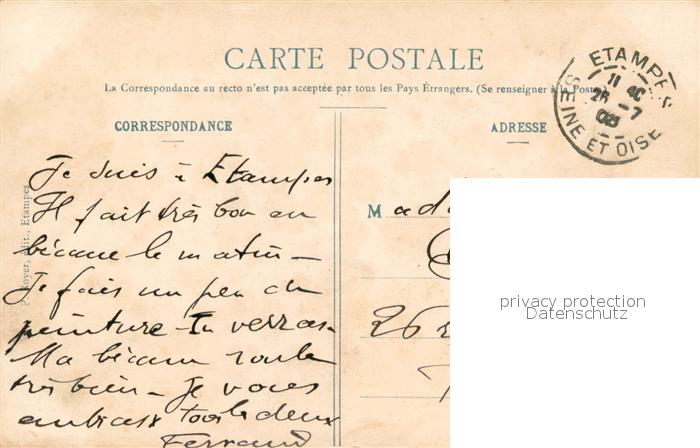 CARTE POSTALE
La Correspondance au recto n'est pas acceptée par tous les Pays Étrangers. (Se renseigner à la Poste)
ETAMPES
11 40
25 -7
08
SEINE ET OISE
CORRESPONDANCE
ADRESSE
Je suis à Etampes
Il fait très bon en
bécane le matin —
Je fais un peu de
peinture - Tu verras -
Ma bécane roule
très bien - Je vous
embrasse tous les deux
Fernand
Mad
26 r
privacy protection
Datenschutz
édit., Etampes